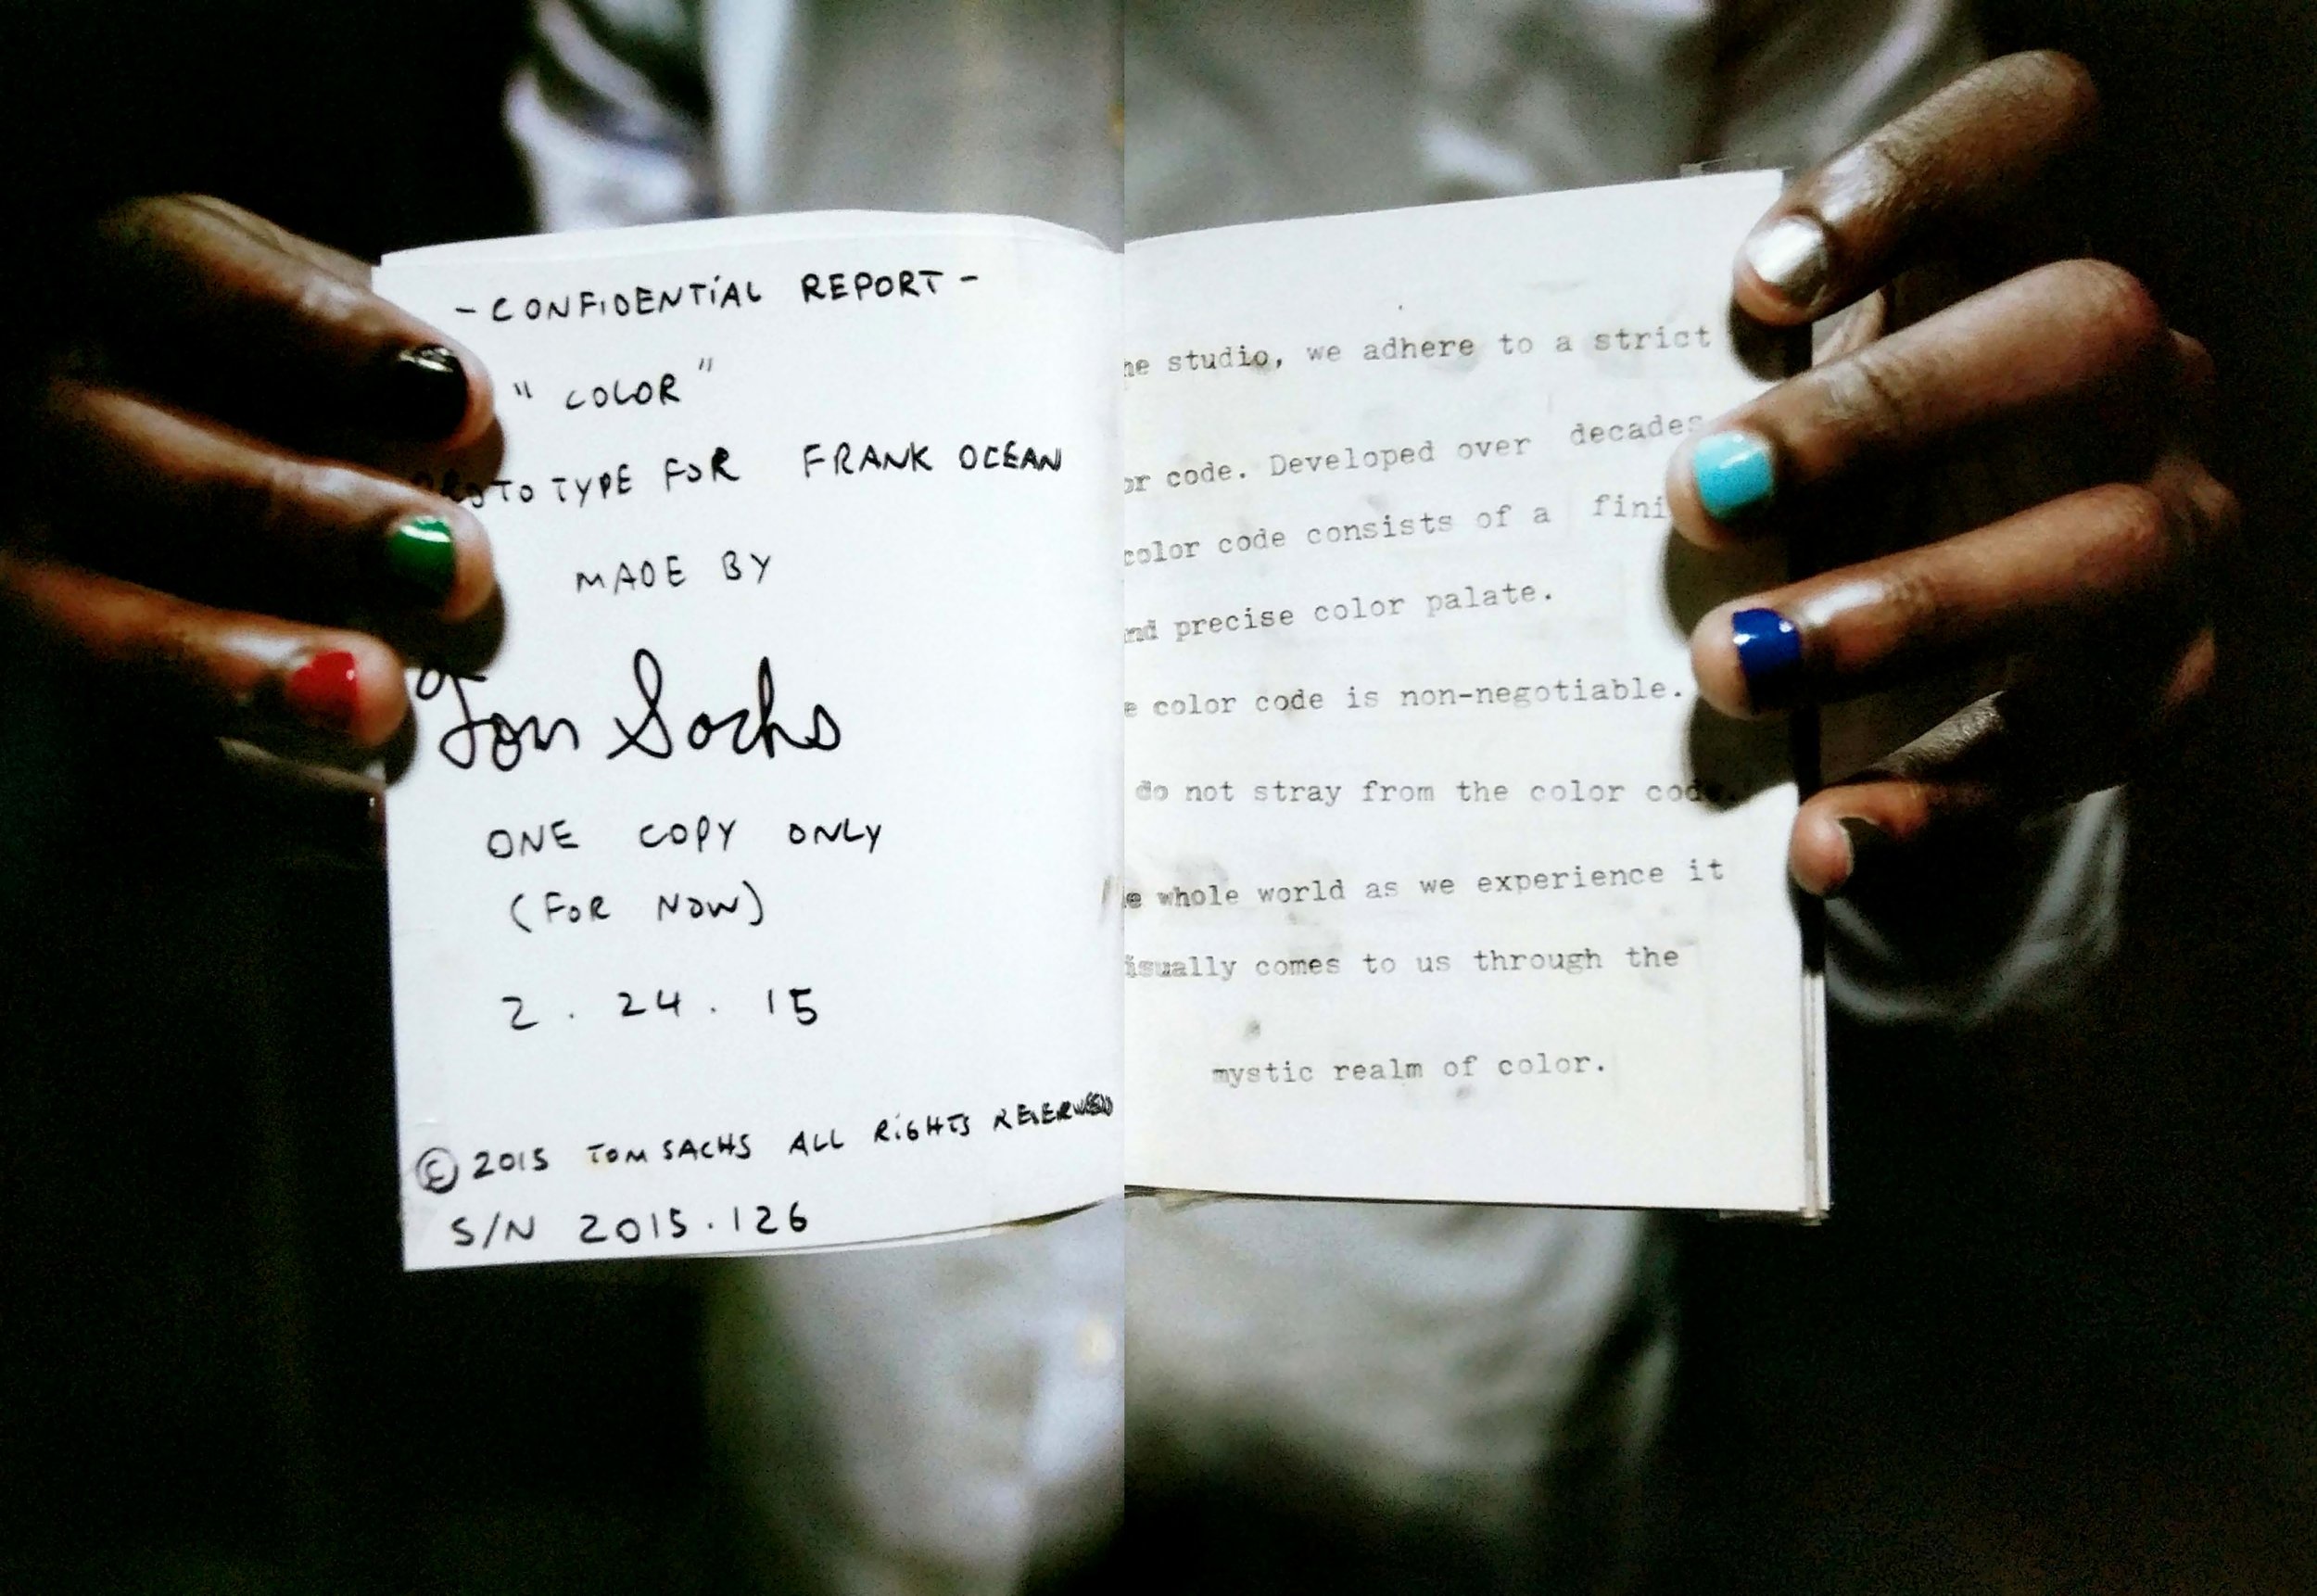 - CONFIDENTIAL REPORT -
" COLOR "
PROTOTYPE FOR FRANK OCEAN
MADE BY
Tom Sachs
ONE COPY ONLY
(FOR NOW)
2 . 24 . 15
© 2015 TOM SACHS ALL RIGHTS RESERVED
S/N 2015.126
he studio, we adhere to a strict
or code. Developed over decades
color code consists of a fini
nd precise color palate.
e color code is non-negotiable.
do not stray from the color code.
e whole world as we experience it
isually comes to us through the
mystic realm of color.